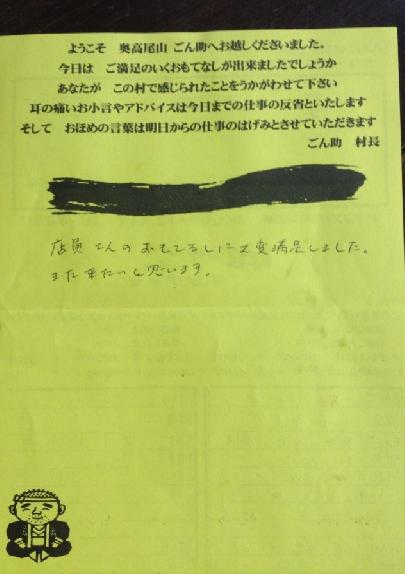 ようこそ　奥高尾山　ごん助へお越しくださいました。
今日は　ご満足のいくおもてなしが出来ましたでしょうか
あなたが　この村で感じられたことをうかがわせて下さい
耳の痛いお小言やアドバイスは今日までの仕事の反省といたします
そして　おほめの言葉は明日からの仕事のはげみとさせていただきます
ごん助　村長
店員さんのおもてなしに大変満足しました。
また来たいと思います。